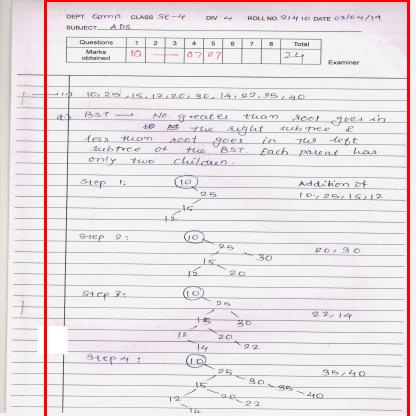 DEPT. Comp CLASS SE-4 DIV 4 ROLL NO. 21410 DATE 03/04/19
SUBJECT ADS
Questions 1 2 3 4 5 6 7 8 Total
Marks obtained 10 — — 07 07 24
Examiner
1) 10, 25, 15, 12, 20, 30, 14, 22, 35, 40
a) BST → No. greater than root goes in
the right subtree &
less than root goes in the left
subtree of the BST. Each parent has
only two children.
Step 1: 10 Addition of
25 10, 25, 15, 12
15
12
Step 2: 10
25 20, 30
15 30
12 20
Step 3: 10
25 22, 14
15 30
12 20
14 22
Step 4: 10 35, 40
25
15 30 35
12 20 22 40
14